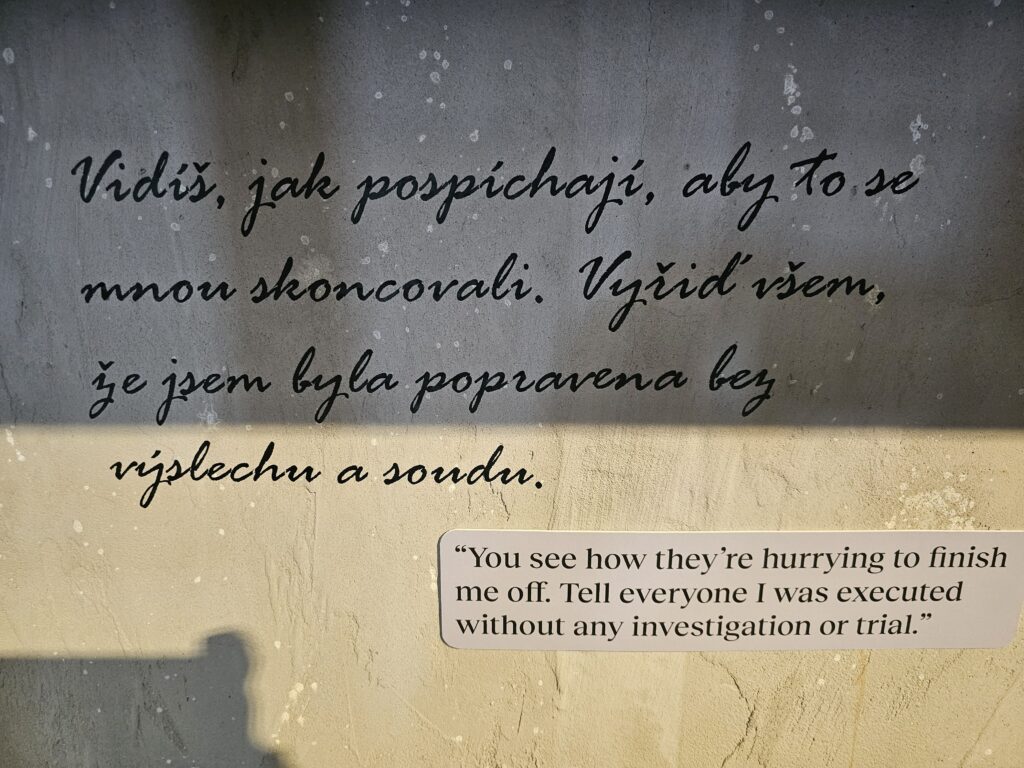 Vidíš, jak pospíchají, aby to se
mnou skoncovali. Vyřiď všem,
že jsem byla popravena bez
výslechu a soudu.
“You see how they’re hurrying to finish
me off. Tell everyone I was executed
without any investigation or trial.”